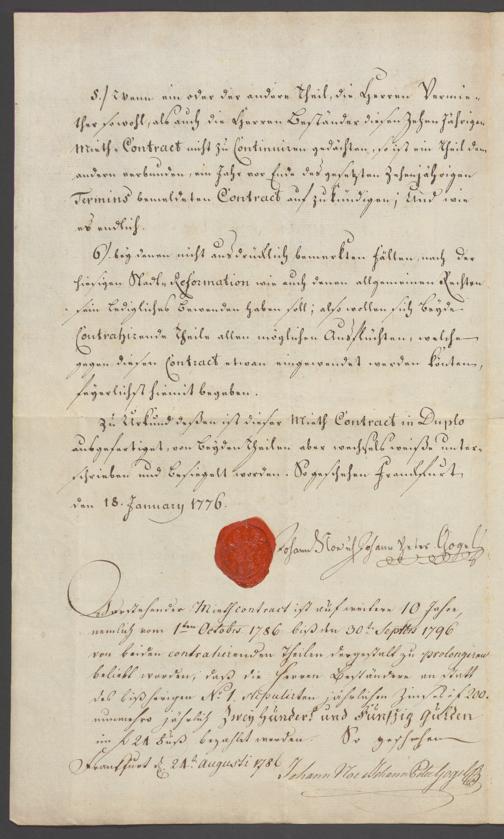 5./ Wenn ein oder der andere Theil, die Herren Vermie-
ther sowohl, als auch die Herren Beständer diesen Zehen Jährigen
Mieth-Contract nicht zu Continuiren gedächten, so ist ein Theil dem
andern verbunden, ein Jahr vor Ende des gesetzten Zehenjährigen
Termins bemeldeten Contract aufzukündigen; Und wie
es endlich.
6./ bey denen nicht ausdrücklich bemerkten Fällen, nach der
hiesigen Stadt-Reformation wie auch denen allgemeinen Rechten
sein lediglichs Bewenden haben soll; also wollen sich Beyde
Contrahirende Theile allen möglichen Ausflüchten, welche
gegen diesen Contract etwan eingewendet werden könten,
feyerlichst hiemit begeben.
Zu Urkund dessen ist dieser Mieth Contract in Duplo
ausgefertiget, von Beyden Theilen aber wechselsweiße unter-
schrieben und besiegelt worden. So geschehen Franckfurt
den 18. January 1776.
Johann Noë und Johann Peter Gogel
Vorstehender Miethcontract ist auf weitere 10 Jahre,
nemlich vom 1ten Octobr 1786 biß den 30t. Septbr 1796
von beiden contrahirenden Theilen dergestalt zu prolongiren
beliebt worden, daß die Herren Beständere an statt
des bißherigen No 1. stipulirten jährlichen Zinß à f 200.
nunmehro jährlich Zweyhundert und Fünfzig Gulden
im f 24 Fuß bezahlet werden. So geschehen
Franckfurt d. 24t Augusti 1786
Johann Noe & Johann Peter Gogel